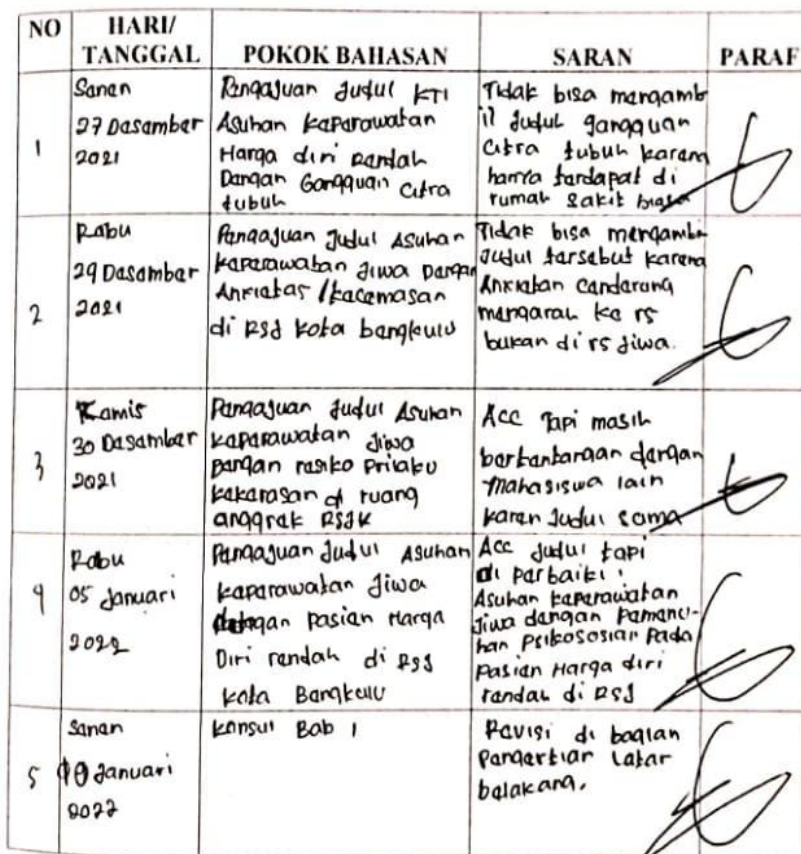 NO HARI/ TANGGAL POKOK BAHASAN SARAN PARAF
1
Senen
27 Desember
2021
Pengajuan Judul KTI
Asuhan Keperawatan
Harga diri rendah
Dengan Gangguan Citra
tubuh
Tidak bisa mengamb
il judul gangguan
Citra tubuh karena
hanya terdapat di
rumah sakit biasa
2
Rabu
29 Desember
2021
Pengajuan Judul Asuhan
Keperawatan Jiwa Dengan
Anxietas /kecemasan
di RSJ Kota bengkulu
Tidak bisa mengambi
Judul tersebut karena
Anxietas cenderung
mengarah ke rs
bukan di rs Jiwa.
3
Kamis
30 Desember
2021
Pengajuan Judul Asuhan
Keperawatan Jiwa
Dengan resiko Prilaku
kekerasan di ruang
anggrek RSJK
Acc Tapi masih
bertentangan dengan
Mahasiswa lain
Karen Judul sama
4
Rabu
05 Januari
2022
Pengajuan Judul Asuhan
keperawatan Jiwa
dengan Pasien Harga
Diri rendah di RSJ
Kota Bengkulu
Acc Judul tapi
di Perbaiki.
Asuhan keperawatan
Jiwa dengan Pemenu-
han Psikososial Pada
Pasien Harga diri
rendah di RSJ
5
Senen
10 Januari
2022
Konsul Bab 1
Revisi di bagian
Pengertian Latar
belakang.